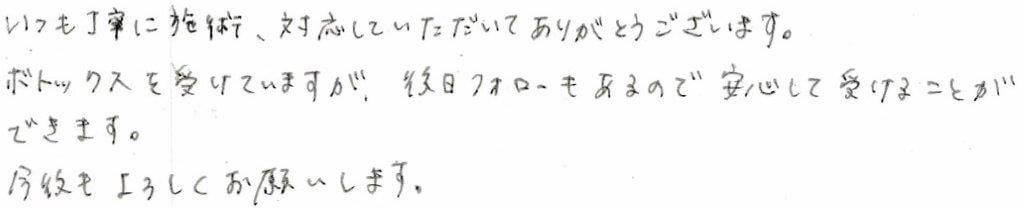 いつも丁寧に施術、対応していただいてありがとうございます。
ボトックスを受けていますが、後日フォローもあるので安心して受けることが
できます。
今後もよろしくお願いします。